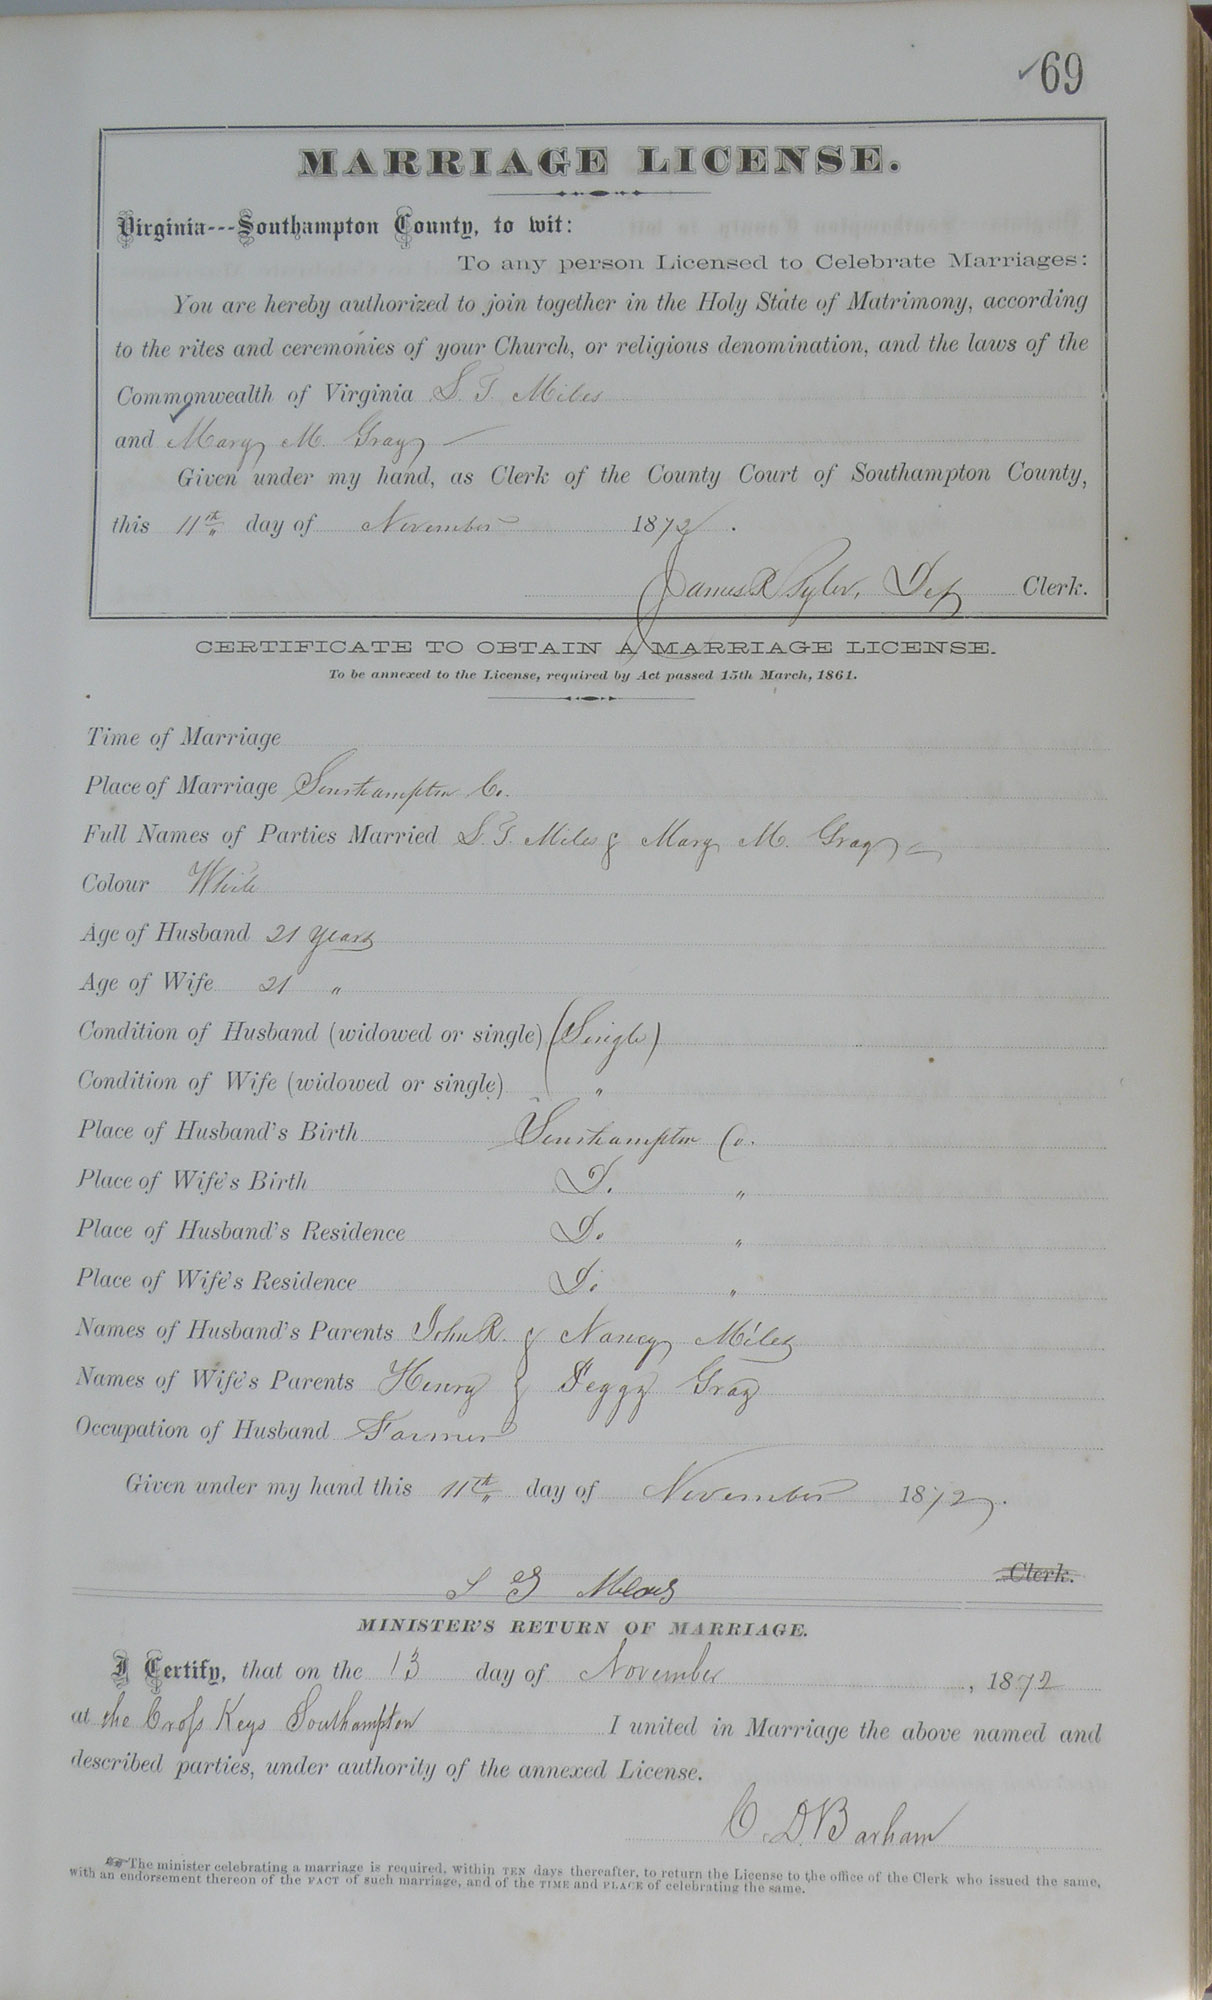 ✓69
MARRIAGE LICENSE.
Virginia---Southampton County, to wit:
To any person Licensed to Celebrate Marriages:
You are hereby authorized to join together in the Holy State of Matrimony, according
to the rites and ceremonies of your Church, or religious denomination, and the laws of the
Commonwealth of Virginia S. T. Miles
and Mary M. Gray
Given under my hand, as Clerk of the County Court of Southampton County,
this 11th day of November 1872.
James R Tyler, Dep Clerk.
CERTIFICATE TO OBTAIN A MARRIAGE LICENSE.
To be annexed to the License, required by Act passed 15th March, 1861.
Time of Marriage
Place of Marriage Southampton Co.
Full Names of Parties Married S. T. Miles & Mary M. Gray
Colour White
Age of Husband 21 years
Age of Wife 21 "
Condition of Husband (widowed or single) (Single)
Condition of Wife (widowed or single) "
Place of Husband's Birth Southampton Co.
Place of Wife's Birth Do "
Place of Husband's Residence Do "
Place of Wife's Residence Do "
Names of Husband's Parents John R. & Nancy Miles
Names of Wife's Parents Henry & Peggy Gray
Occupation of Husband Farmer
Given under my hand this 11th day of November 1872.
Clerk.
MINISTER'S RETURN OF MARRIAGE.
I Certify, that on the 13 day of November, 1872
at the Cross Keys Southampton I united in Marriage the above named and
described parties, under authority of the annexed License.
C. D. Barham
The minister celebrating a marriage is required, within TEN days thereafter, to return the License to the office of the Clerk who issued the same,
with an endorsement thereon of the FACT of such marriage, and of the TIME and PLACE of celebrating the same.